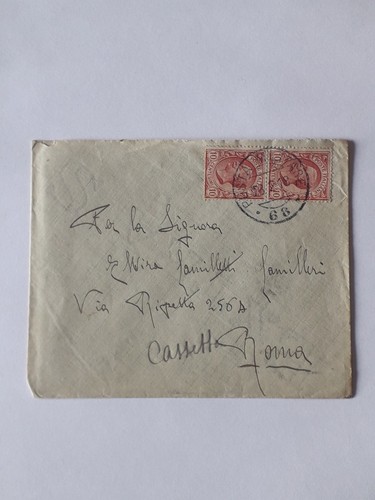 10 10 10 10
68
Per la Signora
Elvira Familletti Familleri
Via Ripetta 256A
Cassetta Roma